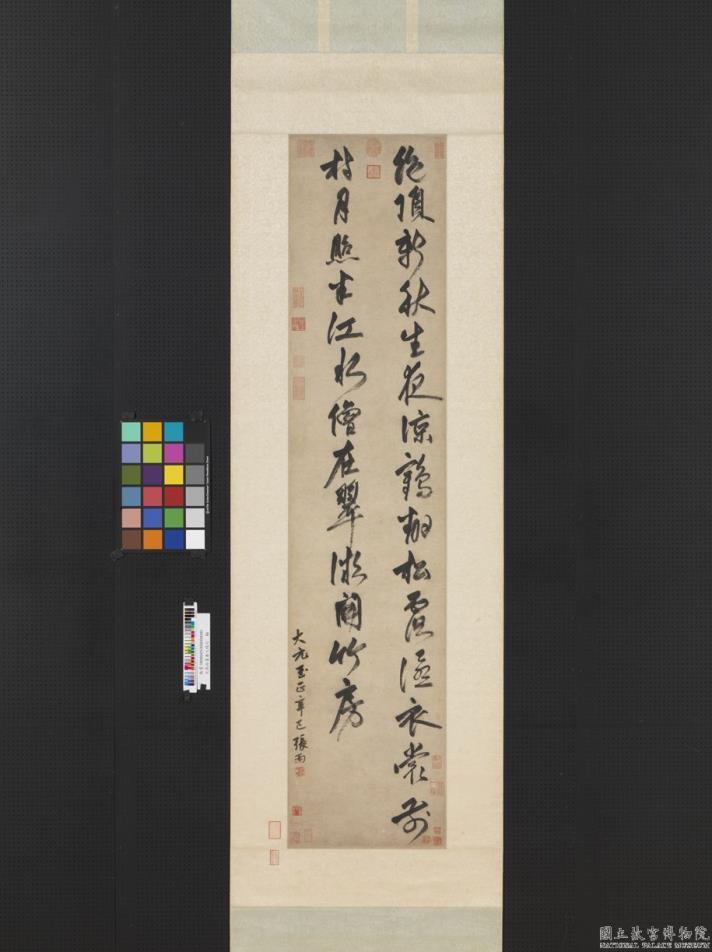 絕頂新秋生夜涼鶴翻松露滴衣裳前
村月照半江水僧在翠微開竹房
大元至正辛巳張雨
國立故宮博物院
NATIONAL PALACE MUSEUM